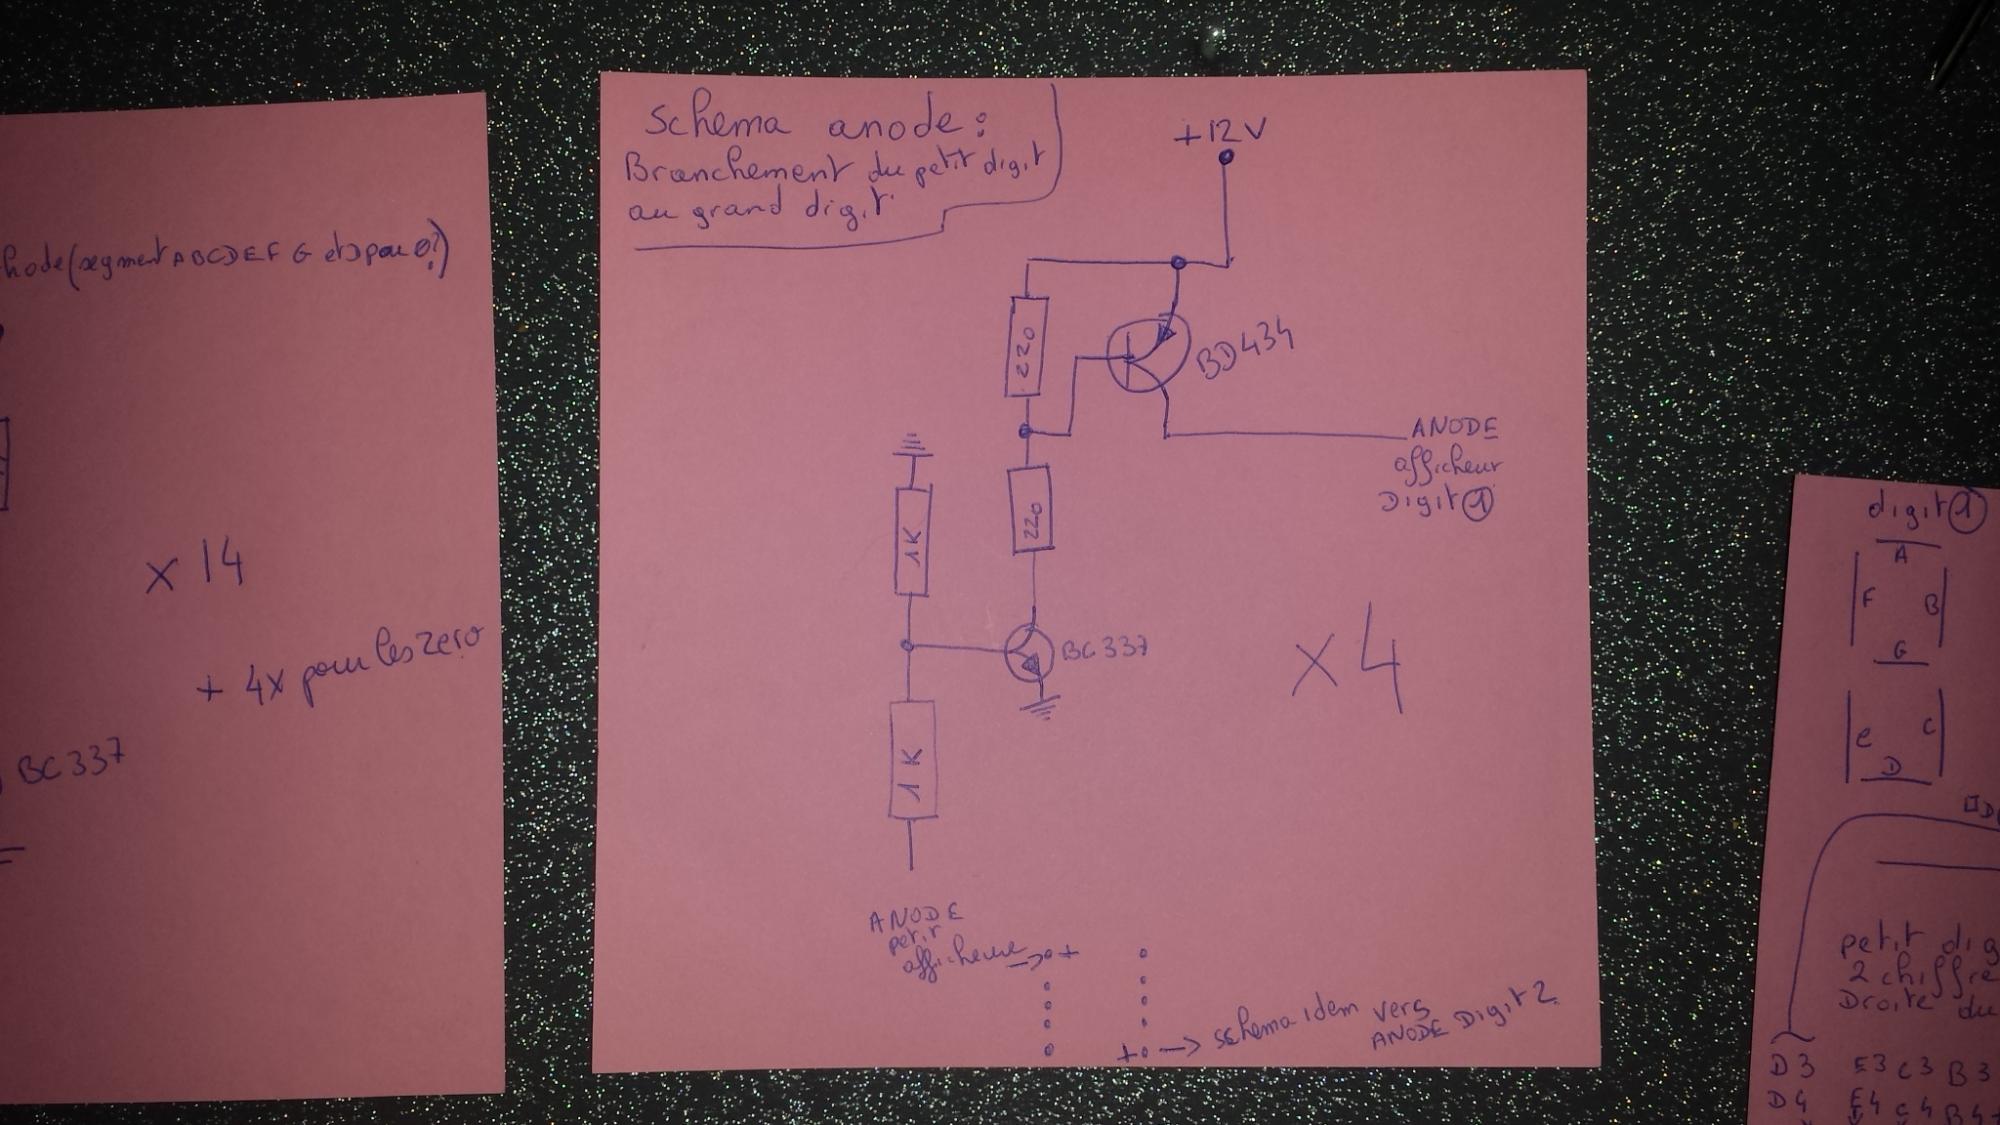 hode (segment ABCDEF G et
x 14
+ 4x pour les zero
BC 337
Schema anode:
Branchement du petit digit
au grand digit
+12V
220
BD434
ANODE
afficheur
Digit 1
220
1K
BC337
x4
1K
ANODE
petit
afficheur -> +
+ -> schema idem vers
ANODE Digit 2
digit 1
A
F B
G
e C
D
petit dig
2 chiffre
Droite du
D3 E3 C3 B3
D4 E4 C4 B4